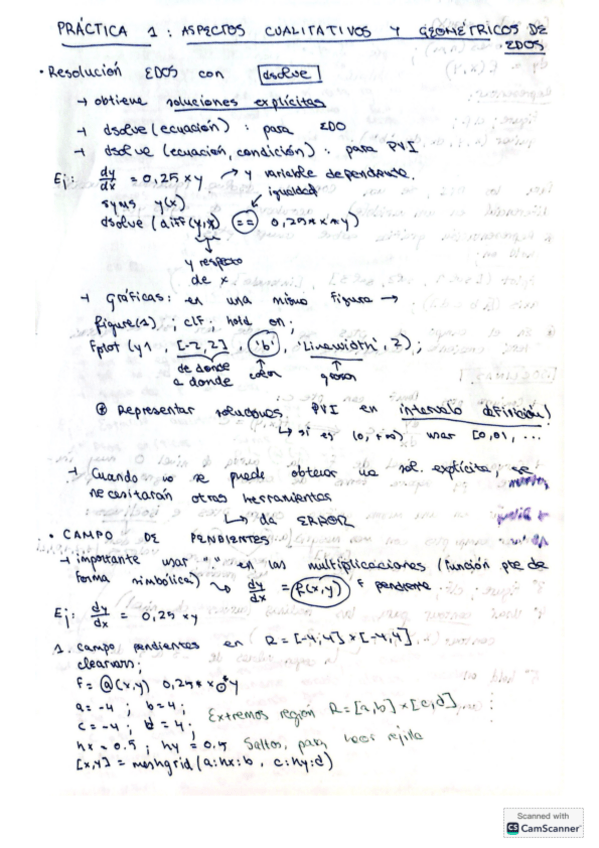 PRÁCTICA 1 : ASPECTOS CUALITATIVOS Y GEOMÉTRICOS DE
EDOS
• Resolución EDOS con dsolve
→ obtiene soluciones explícitas
→ dsolve (ecuación) : para EDO
→ dsolve (ecuación, condición) : para PVI
Ej: dy/dx = 0,25xy → y variable dependiente.
igualdad
syms y(x)
dsolve (diff(y,x) == 0,25*x*y)
y respecto
de x
→ Gráficas: en una misma figura →
figure(1) ; clf ; hold on ;
fplot (y1 , [-2,2] , 'b' , 'Linewidth', 2) ;
de donde a donde color grosor
Representar soluciones PVI en intervalo definición!
↳ si es (0, +∞) usar [0,01, ...
→ Cuando no se puede obtener una sol. explícita, se
necesitarán otras herramientas
↳ da ERROR
• CAMPO DE PENDIENTES
→ importante usar "." en las multiplicaciones (función de
forma simbólica) dy/dx = f(x,y) pendiente
Ej: dy/dx = 0,25xy
1. campo pendientes en R = [-4,4] x [-4,4]
clearvars;
f = @(x,y) 0,25*x.*y
a = -4 ; b = 4 ;
c = -4 ; d = 4 ; Extremos región R = [a,b] x [c,d]
hx = 0.5 ; hy = 0.5 Saltos, para hacer rejilla
[x,y] = meshgrid (a:hx:b , c:hy:d)
Scanned with
CS CamScanner